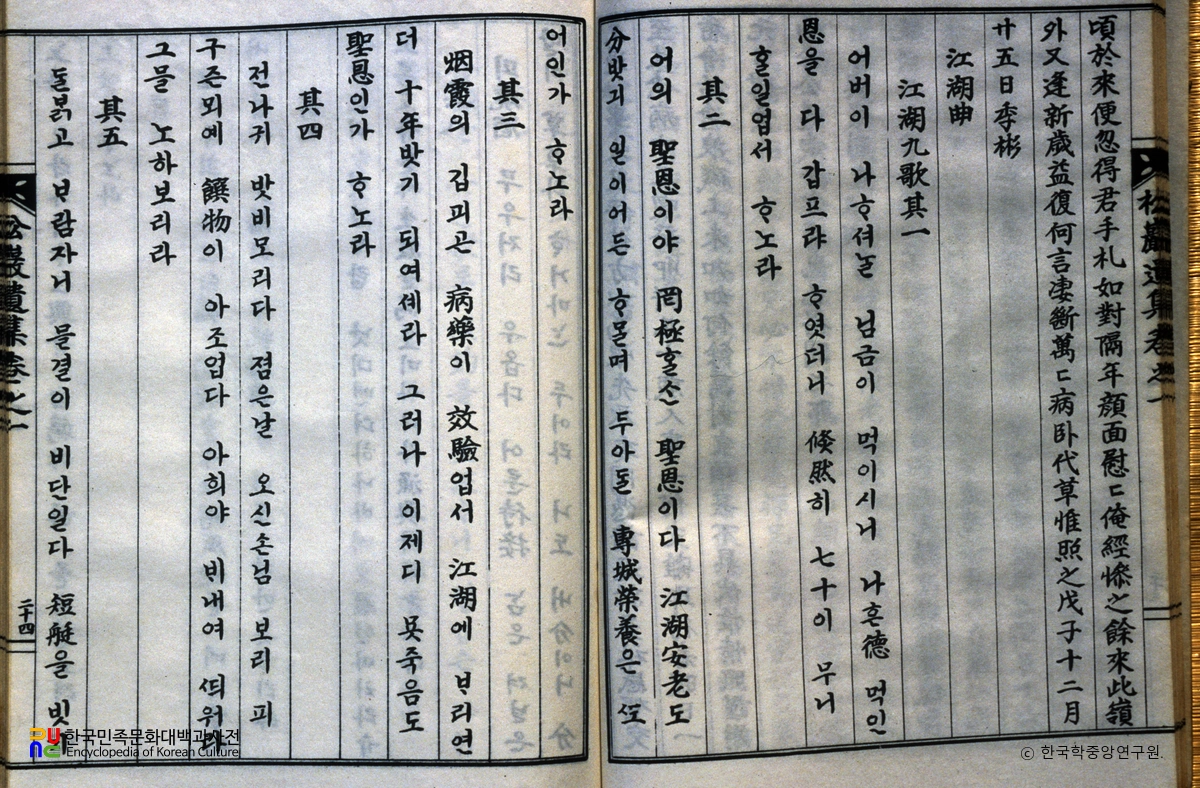 頃於來便忽得君手札如對隔年顔面慰〻俺經慘之餘來此嶺
外又逢新歲益復何言凄斷萬〻病卧代草惟照之戊子十二月
廿五日季彬
江湖曲
江湖九歌其一
어버이 나ᄒᆞ셔ᄂᆞᆯ 님금이 먹이시니 나흔德 먹인
恩을 다 갑프랴 ᄒᆞ엿더니 倏然히 七十이 무니
ᄒᆞᆯ일업서 ᄒᆞ노라
其二
어의 聖恩이야 罔極ᄒᆞᆯ손 聖恩이다 江湖安老도
分밧긔 일이어든 ᄒᆞ믈며 두아ᄃᆞᆯ 專城榮養은 ᄯᅩ
어인가 ᄒᆞ노라
其三
烟霞의 깁픠곤 病藥이 效驗업서 江湖에 ᄇᆞ리연
더 十年밧기 되여셰라 그러나 이제디 못죽음도
聖恩인가 ᄒᆞ노라
其四
전나귀 밧비모리다 졈은날 오신손님 보리 피
구즌뫼예 饌物이 아조업다 아희야 ᄇᆡ내여 ᄯᅴ워라
그믈 노하보리라
其五
ᄃᆞᆯᄇᆞᆰ고 ᄇᆞ람자니 믈결이 비단일다 短艇을 빗기
松巖遺集卷之一
松巖遺集卷之一
二十四
한국민족문화대백과사전
Encyclopedia of Korean Culture
ⓒ 한국학중앙연구원.